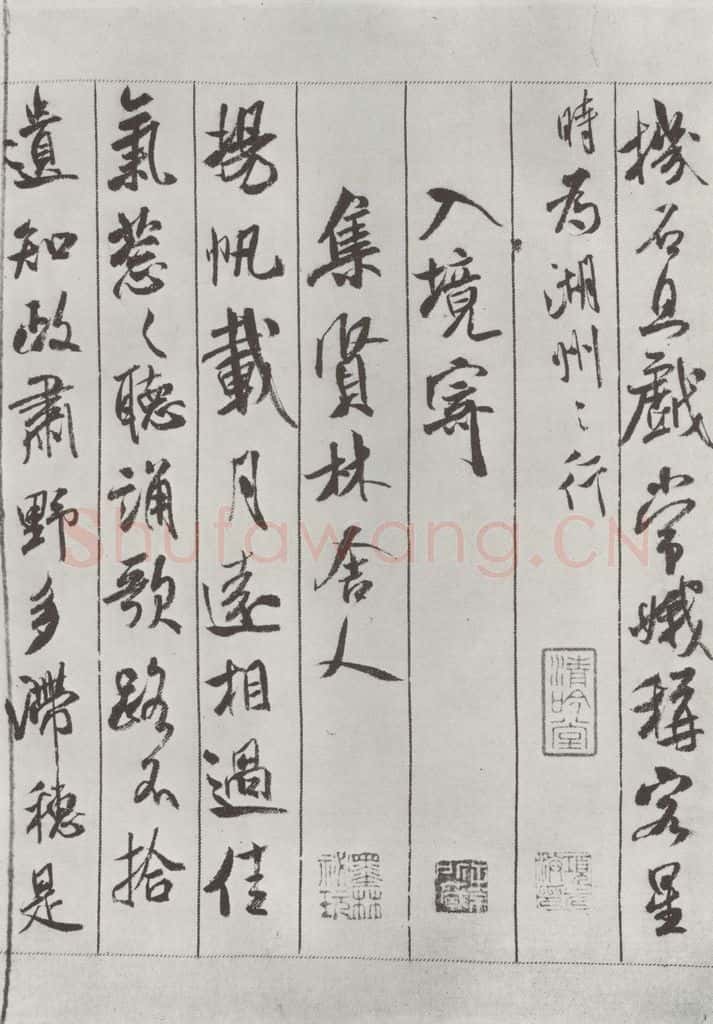 機石且戲常娥稱客星
時為湖州〻行
入境寄
集賢林舍人
揚帆載月遠相過佳
氣蔥〻聽誦歌路不拾
遺知政肅野多滯穗是
清吟堂
墨林祕玩
Shufawang.CN